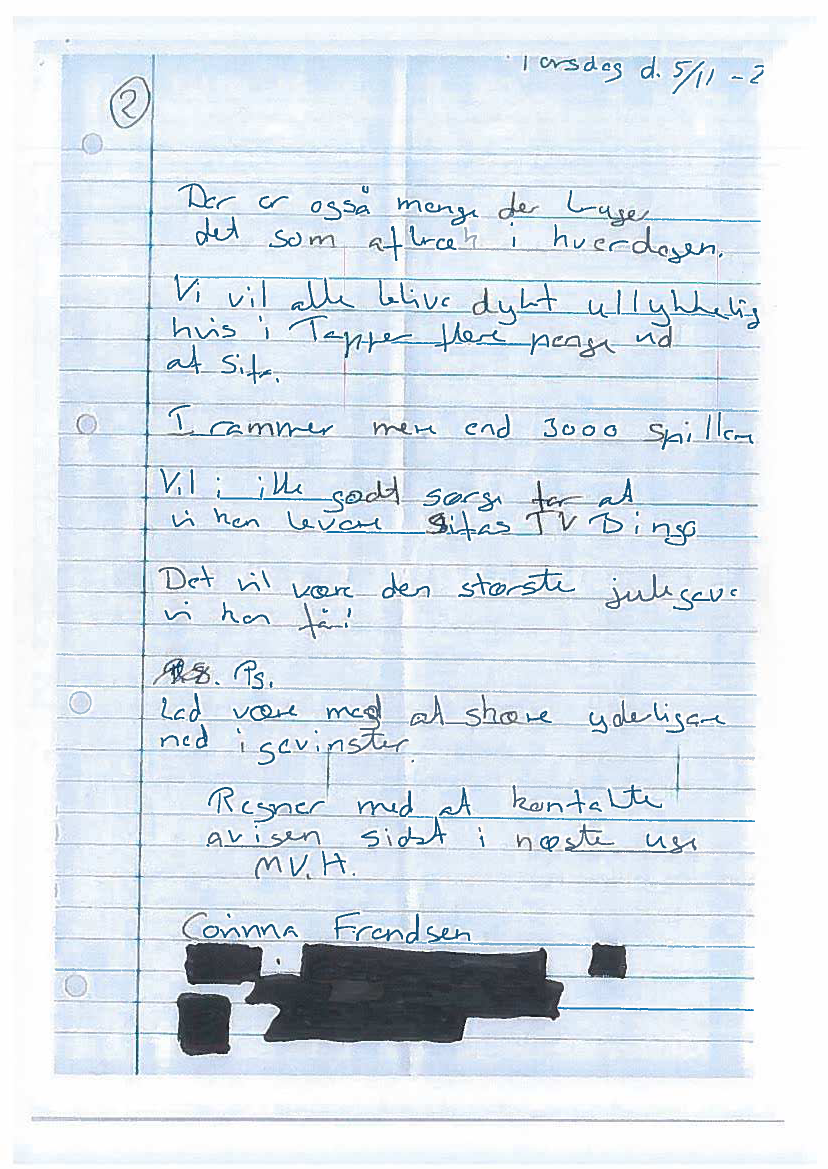 Torsdag d. 5/11 - 2
2
Der er også mange der bruger
det som afbræk i hverdagen.
Vi vil alle blive dybt ullykkelig
hvis i Tapper flere penge ud
af Sifa.
I rammer mere end 3000 spillere
Vil i ikke godt sørge for at
vi kan bevare Sifas TV Bingo
Det vil være den største julegave
vi kan få!
Ps.
Lad være med at skære yderligere
ned i gevinster.
Regner med at kontakte
avisen sidst i næste uge
MV.H.
Corinna Frandsen